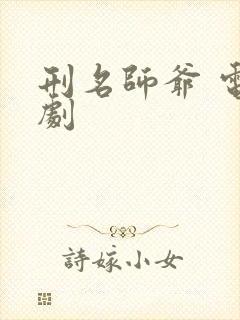 刑名師爺 電
劇
詩嫁小女